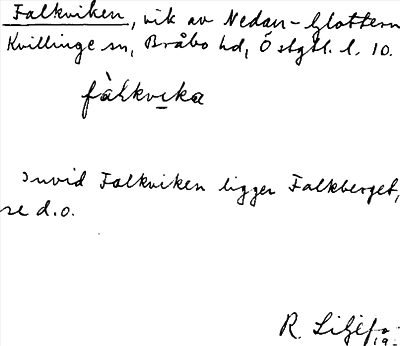 Falkviken, vik av Nedan-Glottern
Kvillinge sn, Bråbo hd, Östgtl. l. 10.
fàlkvika
Invid Falkviken ligger Falkberget,
se d.o.
R.
19